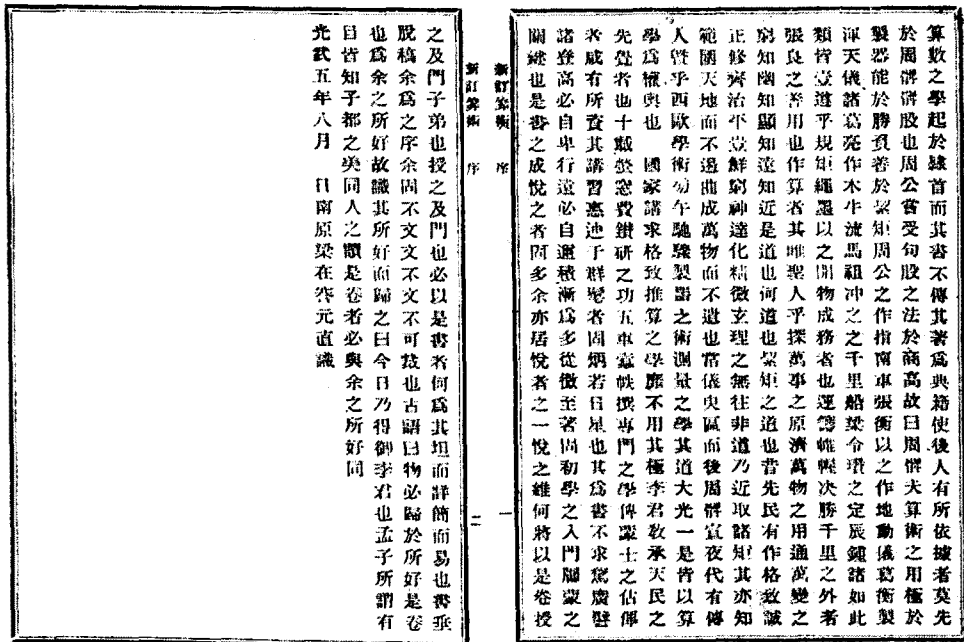 算數之學起於隸首而其書不傳其著爲典籍使後人有所依據者莫先
於周髀髀股也周公嘗受句股之法於商高故曰周髀夫算術之用極於
製器能於勝負善於絜矩周公之作指南車張衡以之作地動儀葛衡製
渾天儀諸葛亮作木牛流馬祖冲之之千里船梁令瓚之定辰鍾諸如此
類皆壹道乎規矩繩墨以之開物成務者也運籌帷幄決勝千里之外者
張良之善用也作算者其唯聖人乎探萬事之原濟萬物之用通萬變之
窮知幽知顯知遠知近是道也何道也絜矩之道也昔先民有作格致誠
正修齊治平豈鮮窮神達化精微玄理之無往非道乃近取諸知其亦知
範圍天地而不過曲成萬物而不遺也當儀央區而後周髀宣夜代有傳
人曁乎西歐學術旁午馳驟製器之術測量之學其道大光一是皆以算
學爲權輿也 國家講求格致推算之學靡不用其極李君敎承天民之
先覺者也十載螢窓費鑽研之功五車蠹帙撰專門之學俾蒙士之佔𠌯
者咸有所資其講習惠迪于群髦者固炳若日星也其爲書不求騖廣譬
諸登高必自卑行遠必自邇積漸爲多從微至著尚初學之入門牖蒙之
關鍵也是書之成悅之者固多余亦居悅者之一悅之維何將以是卷授
新訂算術 序 一
新訂算術 序 二
之及門子弟也授之及門也必以是書者何爲其坦而詳簡而易也書垂
脫稿余爲之序余固不文不文不可裁也古語曰物必歸於所好是卷
也爲余之所好故識其所好而歸之曰今日乃得御李君也孟子所謂有
目皆知子都之美同人之讀是卷者必與余之所好同
光武五年八月 日南原梁在謇元直識